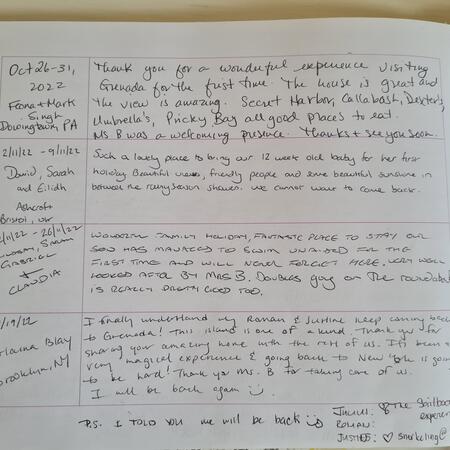 Oct 26-31,
2022
Fiona + Mark
Singh
Downingtown, PA
Thank you for a wonderful experience visiting
Grenada for the first time. The house is great and
the view is amazing. Secret Harbor, Callabash, Dexter's,
Umbrella's, Pricky Bay all good places to eat.
Ms B was a welcoming presence. Thanks + see you soon.
2/11/22 - 9/11/22
David, Sarah
and Eilidh
Ashcroft
Bristol, UK
Such a lovely place to bring our 12 week old baby for her first
holiday. Beautiful views, friendly people and some beautiful sunshine in
between the rainy season showers. We cannot wait to come back.
11/22 - 26/11/22
Gabriel
+
CLAUDIA
WONDERFUL FAMILY HOLIDAY, FANTASTIC PLACE TO STAY OUR
SON HAS MANAGED TO SWIM UNAIDED FOR THE
FIRST TIME AND WILL NEVER FORGET HERE. VERY WELL
LOOKED AFTER BY MRS B. Doubles guy on The roundabout
IS REALLY PRETTY GOOD TOO.
/19/22
Elaina Blay
Brooklyn, NY
I finally understand why Roman & Justine keep coming back
to Grenada! This island is one of a kind. Thank you for
sharing your amazing home with the rest of us. It's been a
very magical experience & going back to New York is going
to be hard! Thank you Ms. B for taking care of us.
I will be back again
P.S. I TOLD YOU we will be back
The Sailboat
experience
ROMAN:
JUSTINE: ♡ snorkeling @